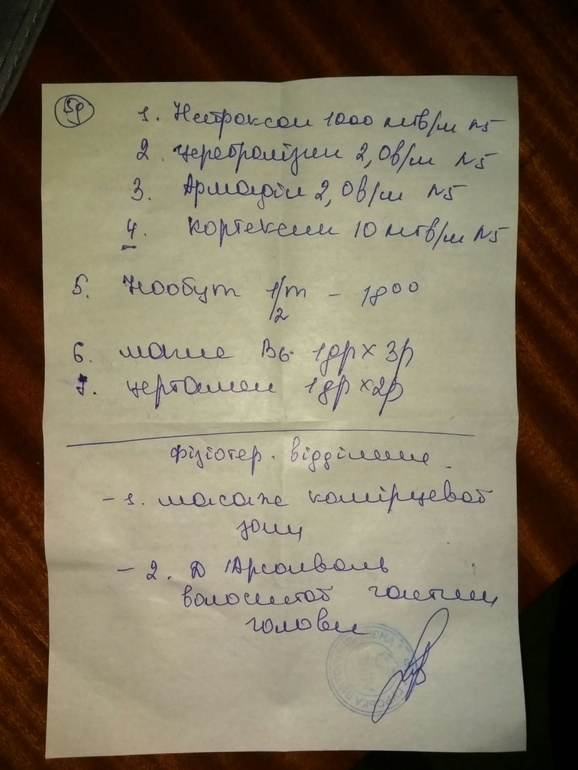 59
1. Нейроксон 1000 мг в/м N5
2. Церебролізин 2,0 в/м N5
3. Армадін 2,0 в/м N5
4. Кортексин 10 мг в/м N5
5. Нообут 1/2 т - 18 00
6. магне В6 1 др х 3р
7. 1 др х 2р
фізіотер. відділення
- 1. масаж комірцевої
зони
- 2. Д'Арсонваль
волосистої частини
голови